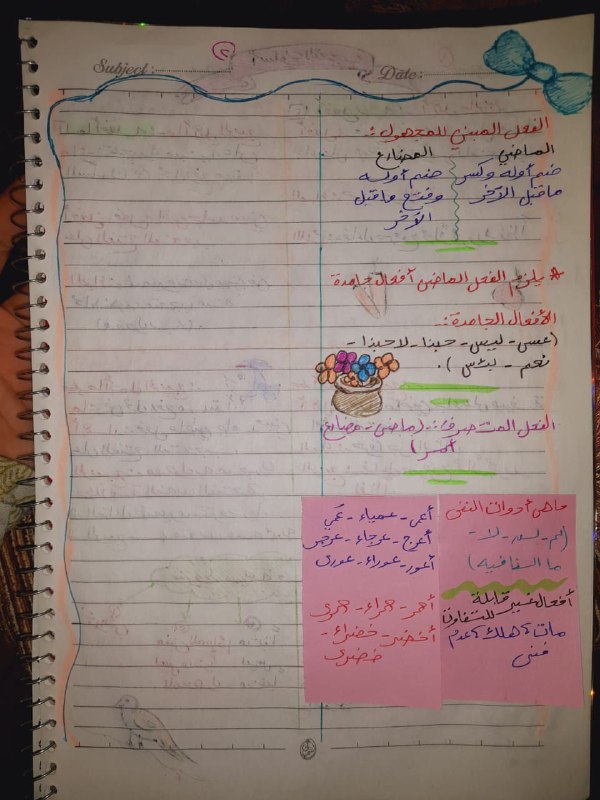 Subject:
Date:
الفعل المبني للمجهول:
الماضي
المضارع
ضم أوله وكسر
ماقبل الآخر
ضم أوله
وفتح ماقبل
الآخر
* يلزم الفعل الماضي أفعال جامدة
الأفعال الجامدة:
(عسى - ليس - حبذا - لاحبذا -
نعم - بئس).
الفعل المتصرف: (ماضي - مضارع
أمر)
ماهي أدوات النفي
(لم - ليس - لا -
ما النافية)
أفعال غير قابلة
للتفاوت
مات، هلك، عدم
فنى
أعمى - عمياء - عمي
أعرج - عرجاء - عرجى
أعور - عوراء - عورى
أحمر - حمراء - حمرى
أخضر - خضراء -
خضرى